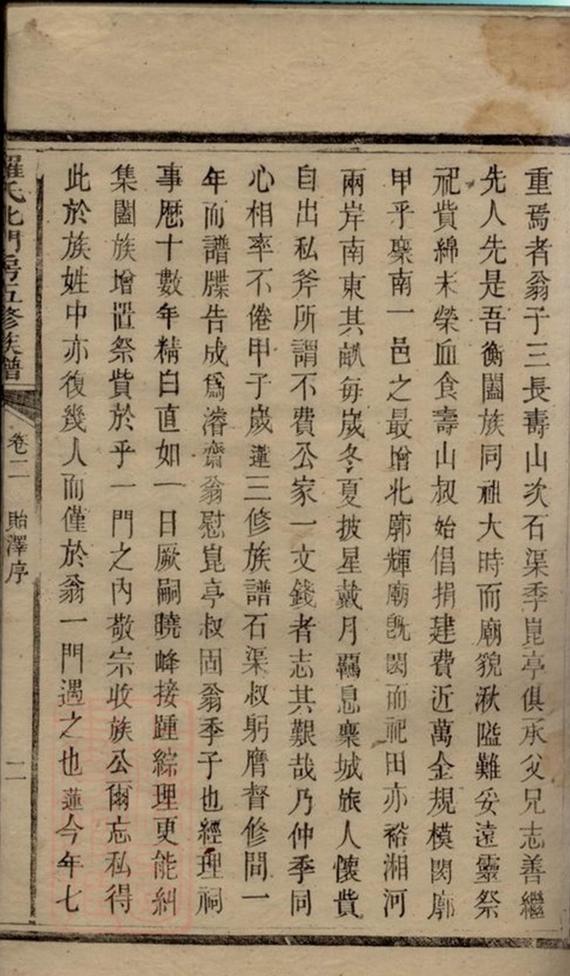 重焉者翁于三長壽山次石渠季崑亭俱承父兄志善繼
先人先是吾衡闔族同祖大時而廟貌湫隘難妥遠靈祭
祀貲綿未榮血食壽山叔始倡捐建費近萬金規模閎廓
甲乎稟南一邑之最增北廓輝廟既閎而祀田亦裕湘河
兩岸南東其畝每歲冬夏披星戴月覊息稟城旅人懷貲
自出私斧所謂不費公家一文錢者志其艱哉乃仲季同
心相率不倦甲子歲蓮三修族譜石渠叔躬膺督修間一
年而譜牒告成爲濬齋翁慰崑亭叔固翁季子也經理祠
事歷十數年精白直如一日厥嗣曉峰接踵綜理更能糾
集闔族增置祭貲於乎一門之內敬宗收族公爾忘私得
此於族姓中亦復幾人而僅於翁一門遇之也蓮今年七
羅氏北門房五修族譜
卷二
貽澤序
二